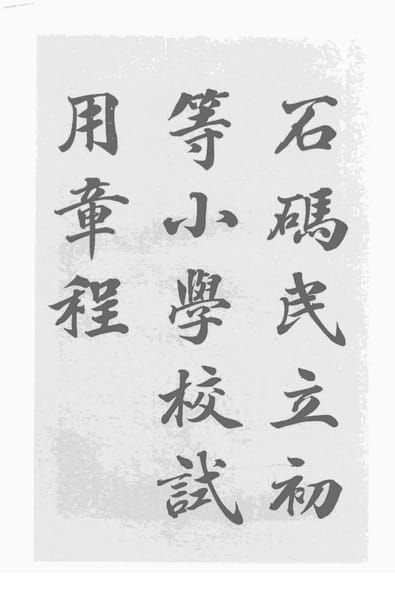 石碼民立初
等小學校試
用章程